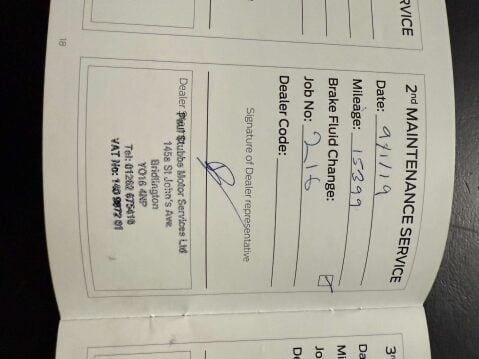 RVICE
18
2nd MAINTENANCE SERVICE
Date: 9/1/19
Mileage: 15399
Brake Fluid Change: ☑
Job No: 216
Dealer Code:
Signature of Dealer representative
Dealer
Paul Stubbs Motor Services Ltd
145a St John's Ave
Bridlington
YO16 4NP
Tel: 01262 675410
VAT No:
3r
Da
Mi
Jo
De